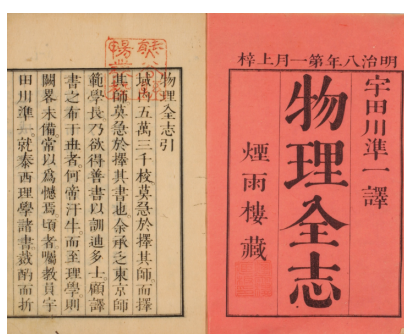 明治八年第一月上梓
宇田川準一譯
物理全志
煙雨樓藏
物理全志引
域内五萬三千校莫急於擇其師而擇
其師莫急於擇其書也余承乏東京師
範學長乃欲得善書以訓迪多士顧譯
書之布于世者何啻汗牛而至理學則
闕畧未備常以爲憾焉頃者囑教員宇
田川準一就泰西理學諸書裁酌而折